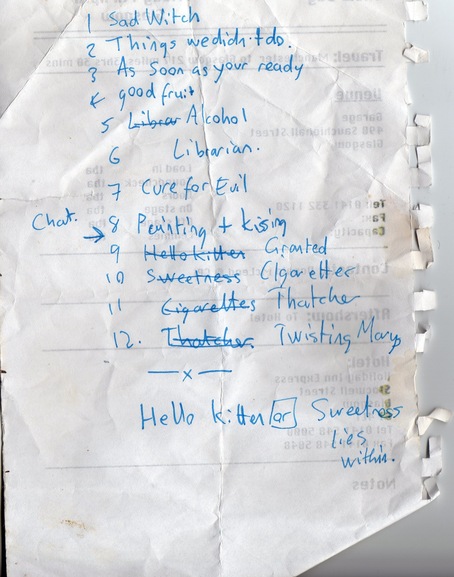 1 Sad Witch
2 Things we didn't do.
3 As Soon as your ready
4 good fruit
5 Librar Alcohol
6 Librarian.
7 Cure for Evil
Chat. → 8 Painting + kissing
9 Hello kitten Granted
10 Sweetness Cigarettes
11 Cigarettes Thatcher
12. Thatcher Twisting Mary
—x—
Hello kitten or Sweetness
lies
within.
Travel:
Venue
Garage
490 Sauchiehall Street
Glasgow
Load in
on stage
Tel
Fax:
Capacity
Aftershow:
To Hotel
Hotel:
Holiday Inn Express
Stockwell Street
Notes